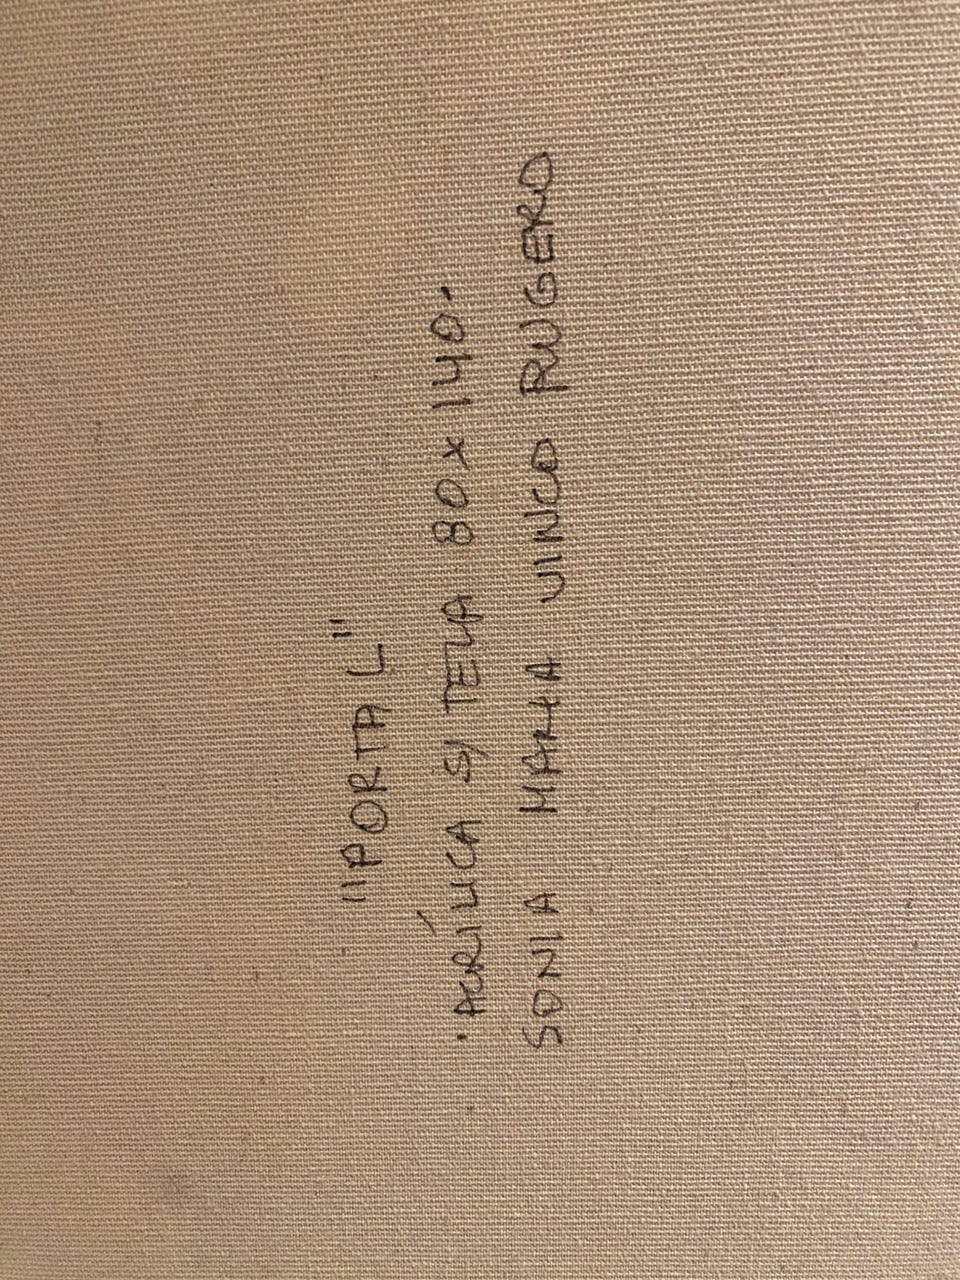 "PORTAL"
· ACRÍLICA S/ TELA 80 x 140.
SONIA MARIA VINCO RUGERO